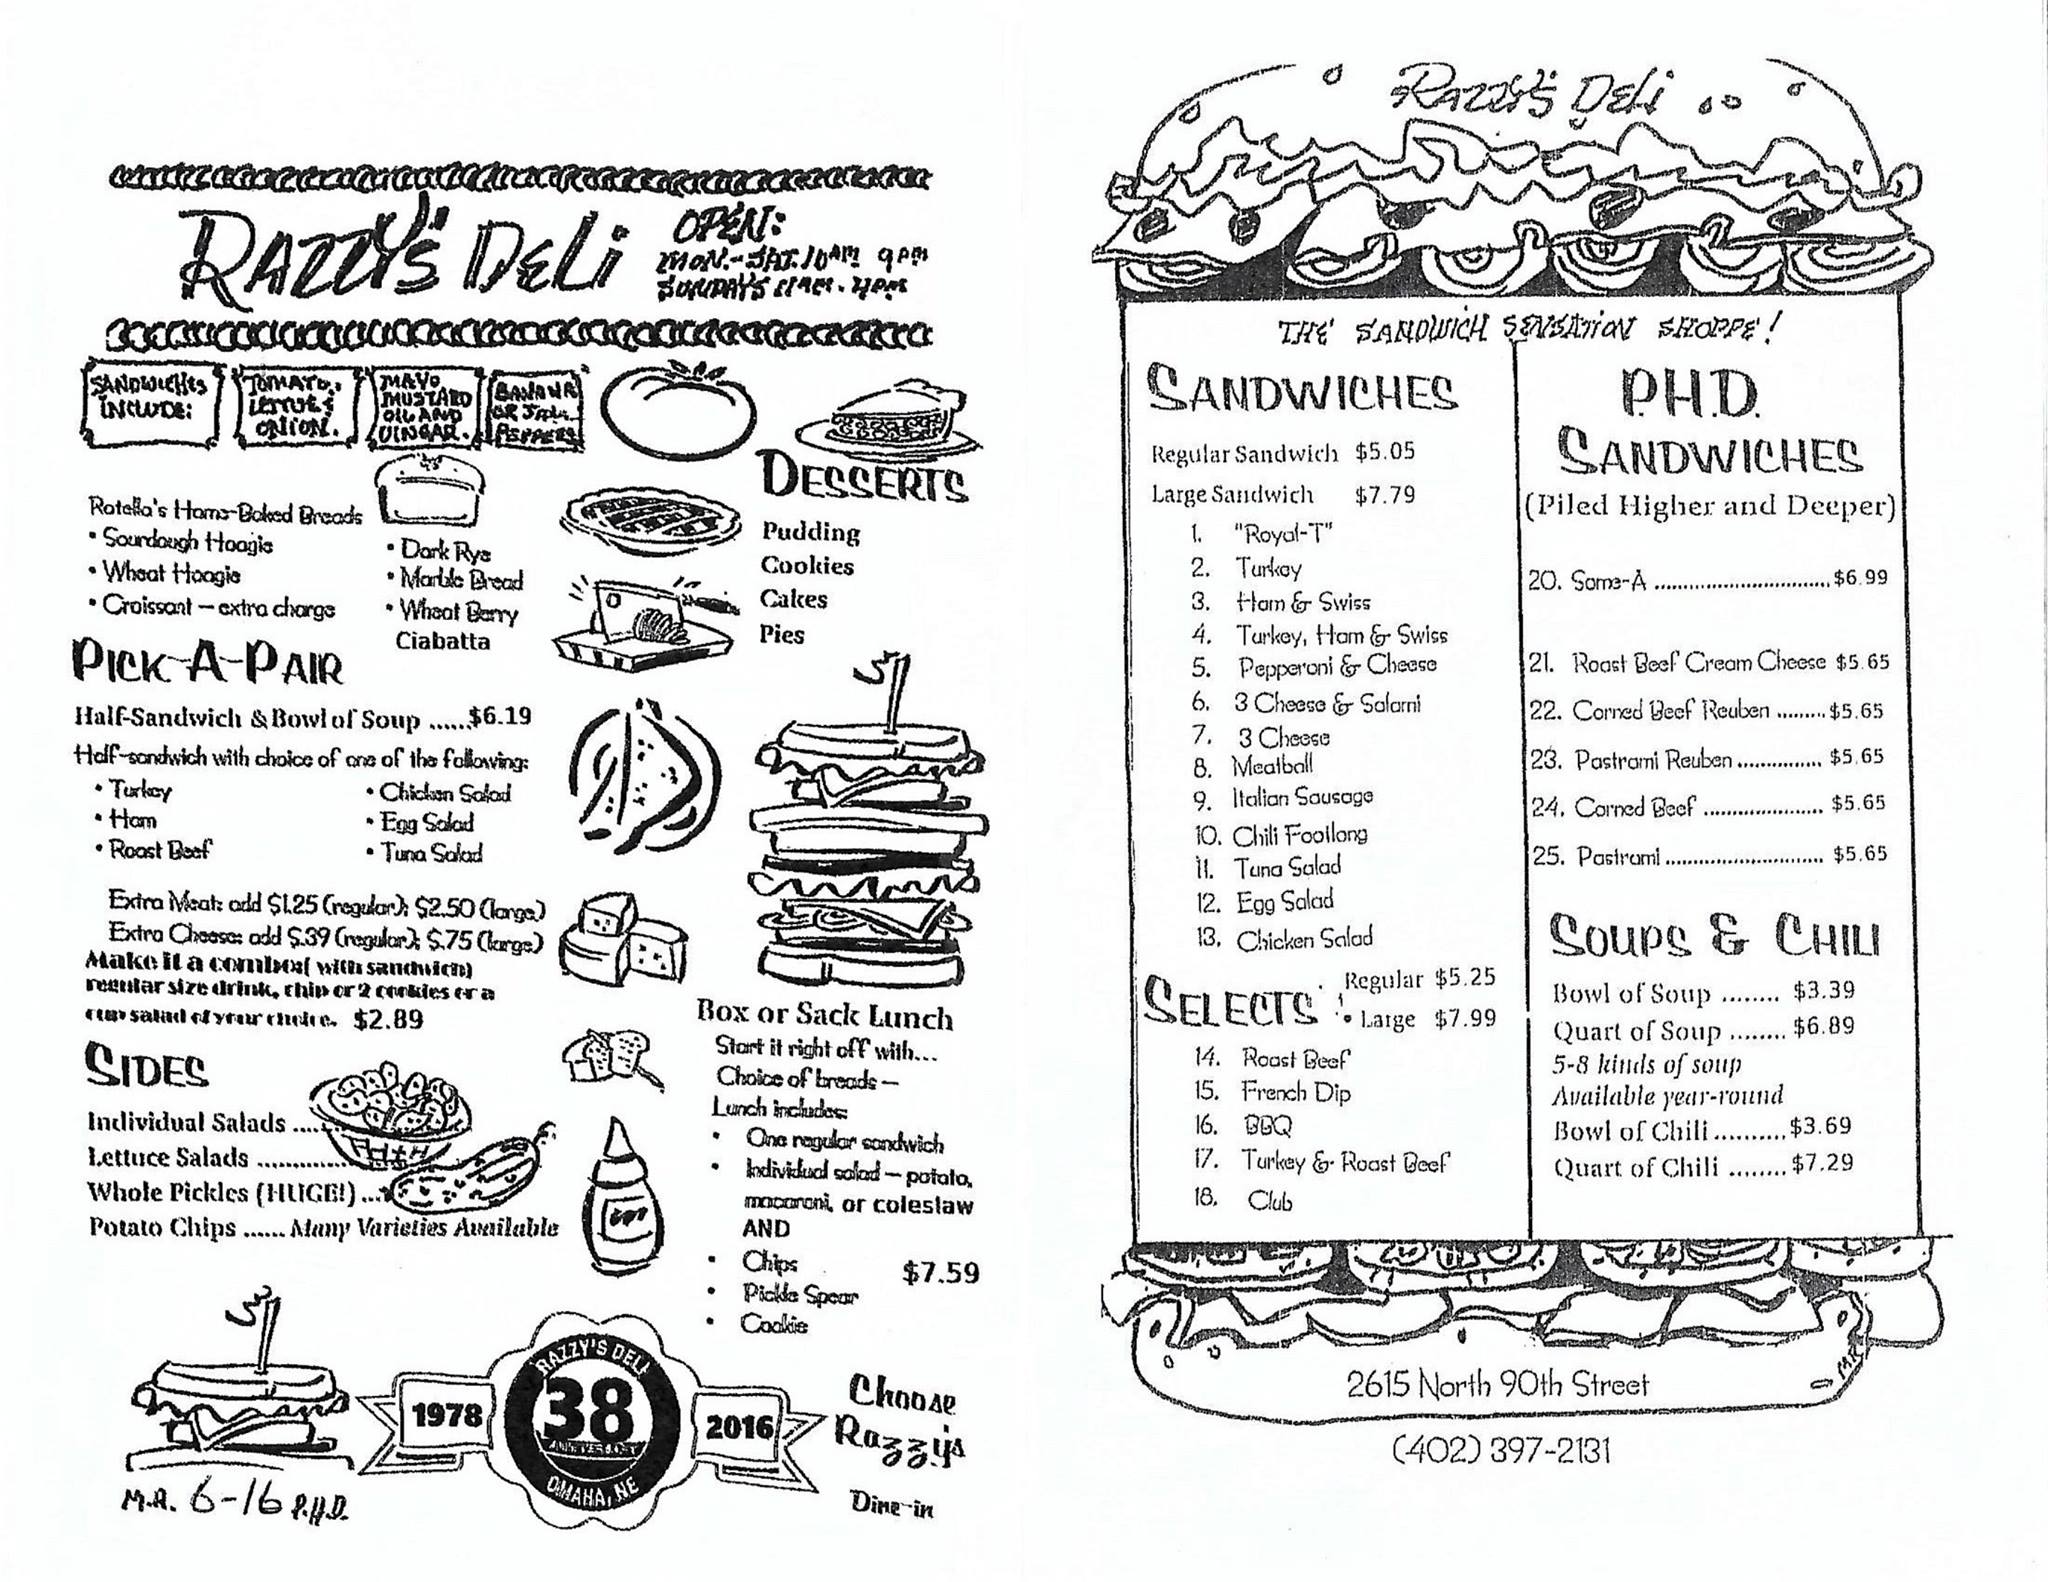 RAZZY'S DELI
OPEN:
MON.-SAT. 10AM 9PM
SUNDAY'S 11AM. 4PM
SANDWICHES
INCLUDE:
TOMATO,
LETTUCE
ONION.
MAYO
MUSTARD
OIL AND
VINGAR.
BANANA
OR JALA
PEPPERS
Rotella's Home-Baked Breads
• Sourdough Hoagie
• Wheat Hoagie
• Croissant – extra charge
• Dark Rye
• Marble Bread
• Wheat Berry
Ciabatta
DESSERTS
Pudding
Cookies
Cakes
Pies
PICK-A-PAIR
Half-Sandwich & Bowl of Soup ......$6.19
Half-sandwich with choice of one of the following:
• Turkey
• Ham
• Roast Beef
• Chicken Salad
• Egg Salad
• Tuna Salad
Extra Meat: add $1.25 (regular); $2.50 (large)
Extra Cheese: add $.39 (regular); $.75 (large)
Make it a combo( with sandwich)
regular size drink, chip or 2 cookies or a
cup salad of your choice. $2.89
SIDES
Individual Salads ....
Lettuce Salads ..............
Whole Pickles (HUGE!) ...
Potato Chips ...... Many Varieties Available
Box or Sack Lunch
Start it right off with...
Choice of breads –
Lunch includes:
• One regular sandwich
• Individual salad – potato,
macaroni, or coleslaw
AND
• Chips
$7.59
• Pickle Spear
• Cookie
RAZZY'S DELI
1978
38
2016
ANNIVERSARY
OMAHA, NE
Choose
Razzy's
Dine-in
M.R. 6-16 P.H.D.
RAZZY'S DELI
THE SANDWICH SENSATION SHOPPE!
SANDWICHES
Regular Sandwich $5.05
Large Sandwich $7.79
1. "Royal-T"
2. Turkey
3. Ham & Swiss
4. Turkey, Ham & Swiss
5. Pepperoni & Cheese
6. 3 Cheese & Salami
7. 3 Cheese
8. Meatball
9. Italian Sausage
10. Chili Footlong
11. Tuna Salad
12. Egg Salad
13. Chicken Salad
SELECTS
• Regular $5.25
• Large $7.99
14. Roast Beef
15. French Dip
16. BBQ
17. Turkey & Roast Beef
18. Club
P.H.D.
SANDWICHES
(Piled Higher and Deeper)
20. Some-A ..............................$6.99
21. Roast Beef Cream Cheese $5.65
22. Corned Beef Reuben .........$5.65
23. Pastrami Reuben............... $5.65
24. Corned Beef ..................... $5.65
25. Pastrami ............................ $5.65
SOUPS & CHILI
Bowl of Soup ........ $3.39
Quart of Soup ........ $6.89
5-8 kinds of soup
Available year-round
Bowl of Chili ..........$3.69
Quart of Chili ........$7.29
MR
2615 North 90th Street
(402) 397-2131